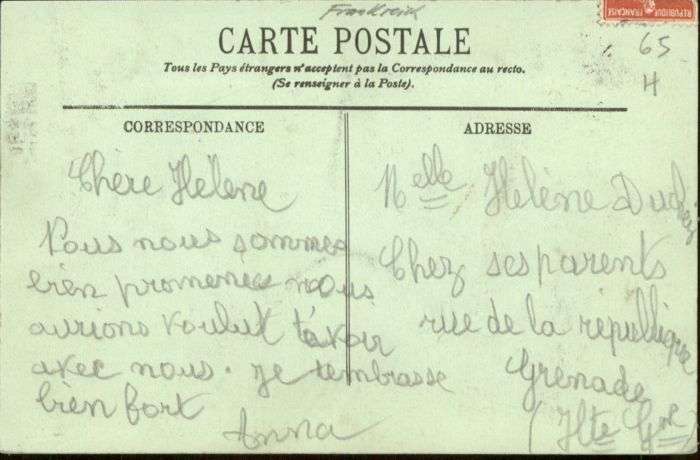 Frankreich
REPUBLIQUE FRANÇAISE
65
H
CARTE POSTALE
Tous les Pays étrangers n'acceptent pas la Correspondance au recto.
(Se renseigner à la Poste).
CORRESPONDANCE
Chère Hélène
Nous nous sommes
bien promenées nous
aurions voulut t'avoir
avec nous. je tembrasse
bien fort
Anna
ADRESSE
Melle Hélène
Chez ses parents
rue de la républiqe
Grenade
(Hte Gne)